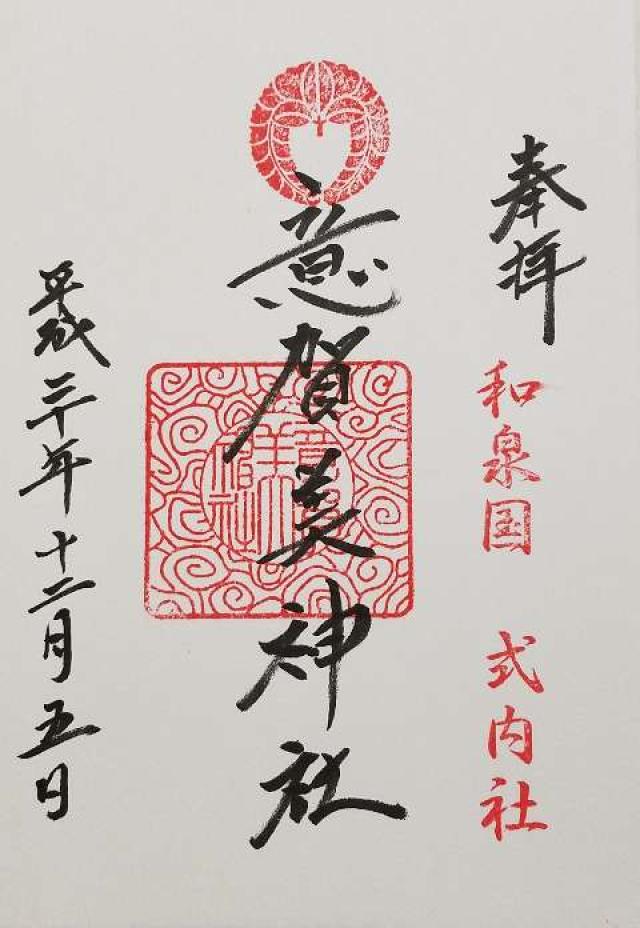 奉拝
和泉国 式内社
意賀美神社
平成三十年十二月五日